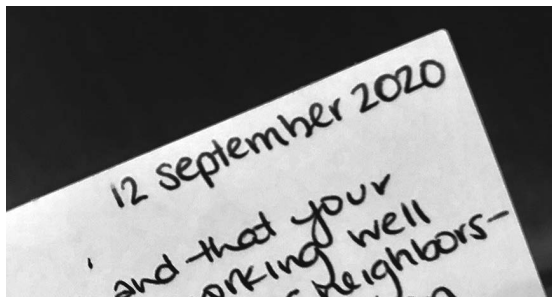 12 September 2020
and that your
orking well
neighbors-